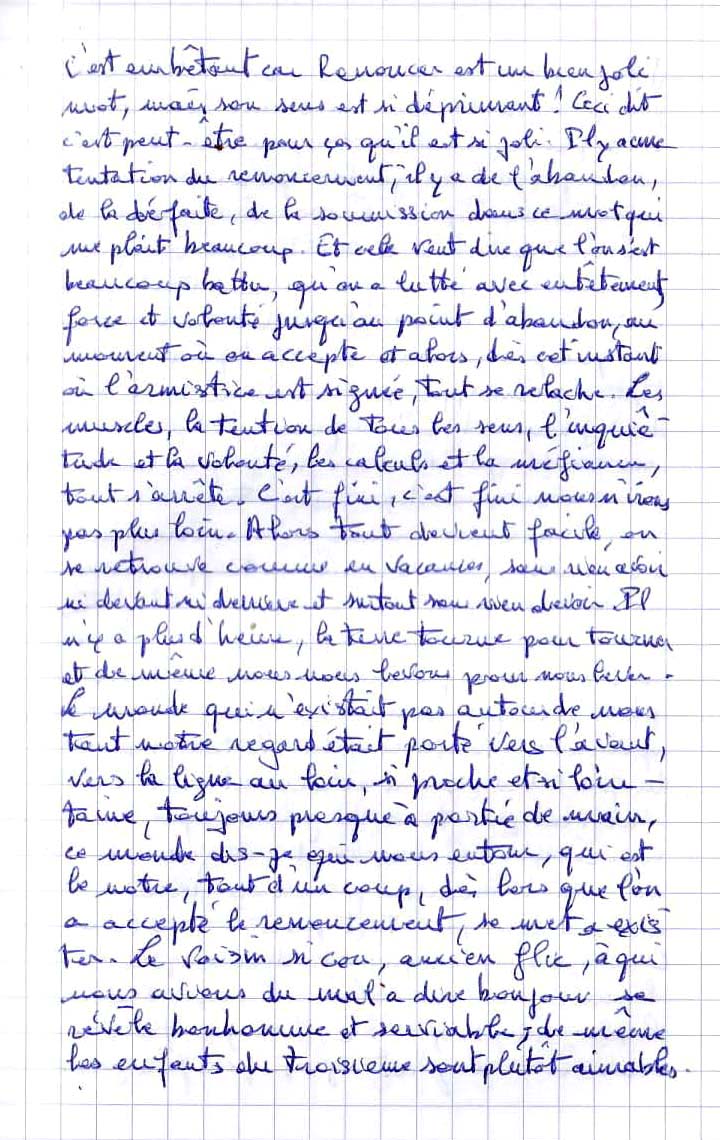 C'est embêtant car Renoncer est un bien joli
mot, mais son sens est si déprimant ! Ceci dit
c'est peut-être pour ça qu'il est si joli. Il y a une
tentation du renoncement, il y a de l'abandon,
de la défaite, de la soumission dans ce mot qui
me plaît beaucoup. Et cela veut dire que l'on s'est
beaucoup battu, qu'on a lutté avec entêtement,
force et volonté jusqu'au point d'abandon, au
moment où on accepte et alors, dès cet instant
où l'armistice est signée, tout se relache. Les
muscles, la tention de tous les sens, l'inquiè-
tude et la volonté, les calculs et la méfiance,
tout s'arrête. C'est fini, c'est fini nous n'irons
pas plus loin. Alors tout devient facile, on
se retrouve comme en vacances, sans rien avoir
ni devant ni derrière et surtout sans rien devoir. Il
n'y a plus d'heure, la terre tourne pour tourner
et de même nous nous levons pour nous lever.
Le monde qui n'existait pas autour de nous
tant notre regard était porté vers l'avant,
vers la ligne au loin, si proche et si loin-
taine, toujours presque à portée de main,
ce monde dis-je qui nous entoure, qui est
le notre, tout d'un coup, dès lors que l'on
a accepté le renoncement, se met a exis
ter. Le voisin si con, ancien flic, à qui
nous avions du mal a dire bonjour se
révèle bonhomme et serviable ; de même
les enfants du troisieme sont plutôt aimables.